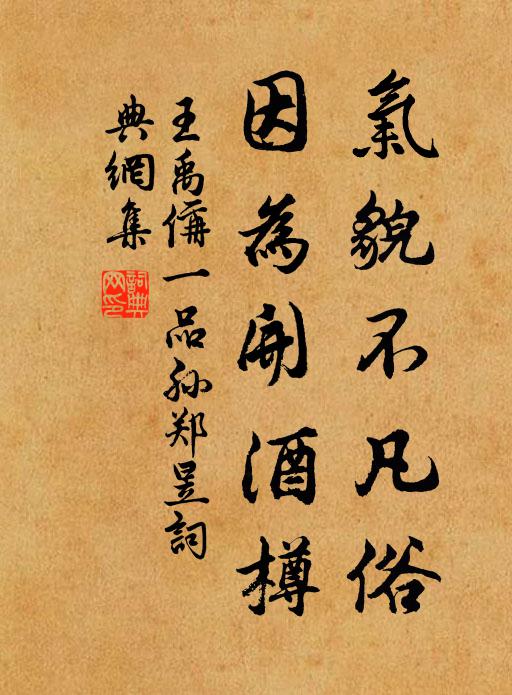 氣貌不凡俗
因為開酒樽
王禹偁一品孫郑昱詞
典網集
詞典网印